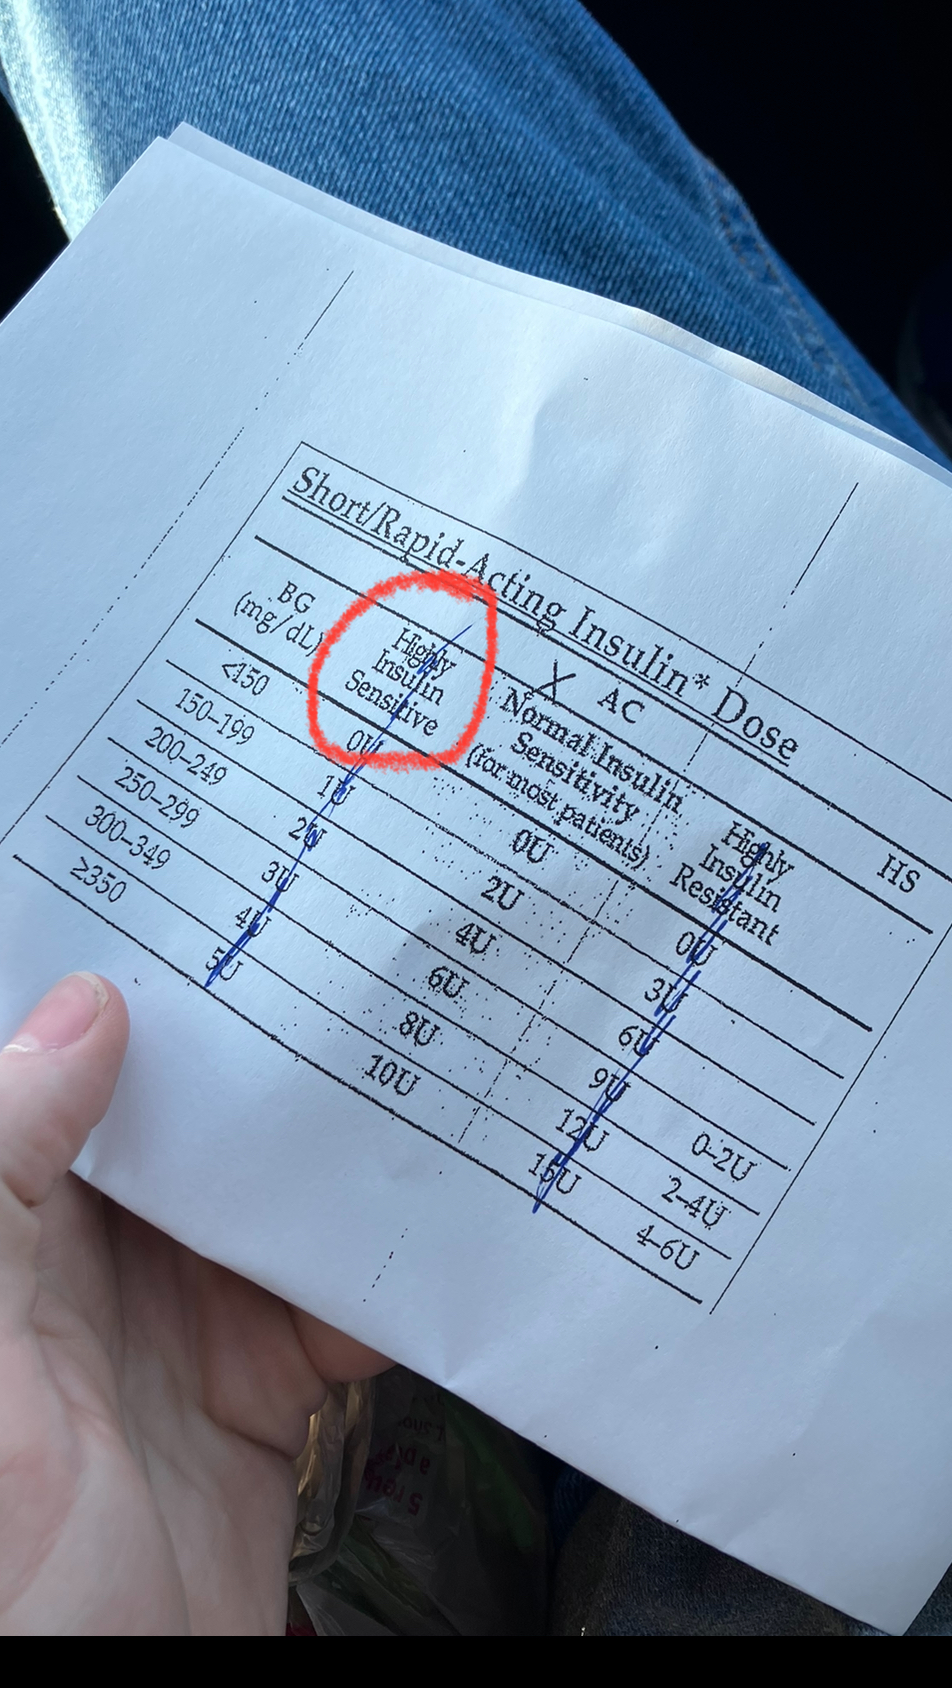 Short/Rapid-Acting Insulin* Dose
X AC
HS
BG
(mg/dL)
Highly
Insulin
Sensitive
Normal Insulin
Sensitivity
(for most patients)
Highly
Insulin
Resistant
<150 0U 0U 0U
150-199 1U 2U 3U
200-249 2U 4U 6U
250-299 3U 6U 9U 0-2U
300-349 4U 8U 12U 2-4U
≥350 5U 10U 15U 4-6U